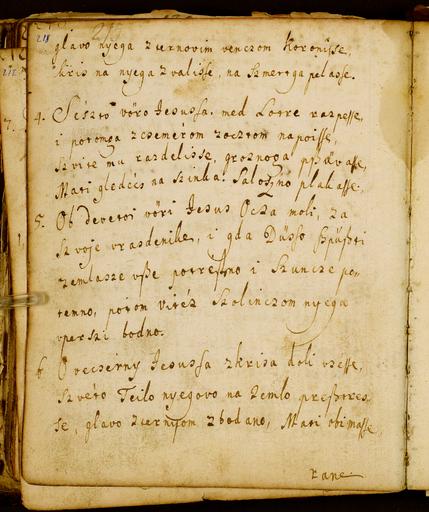 218
glavo nyega z ternovim venczom Koronisse,
kris na nyega zvalisse, na Szmert ga pelasse.
4. Sesztö vöro Jesussa med Lotre razpesse,
i potomga zcsemerom zocztom napoisse,
szvite mu razdelisse, groznoga
Mati gledécs na szinka. Salozno plakasse,
5. Ob devetoi vöri Jesus Ocza moli, za
szvoje vrasdenike, i gda Düsso
zemlasze vsze potres no i Szuncze po-
temno, potom vitéz Szolinczom nyega
vperszi bodno.
6 O vecserny Jesussa zkrisa doli vzésse,
Szvéto Teilo nyegovo na Zemlo presztres-
se, glavo zternyom zbodano, Mati obimasse,
rane